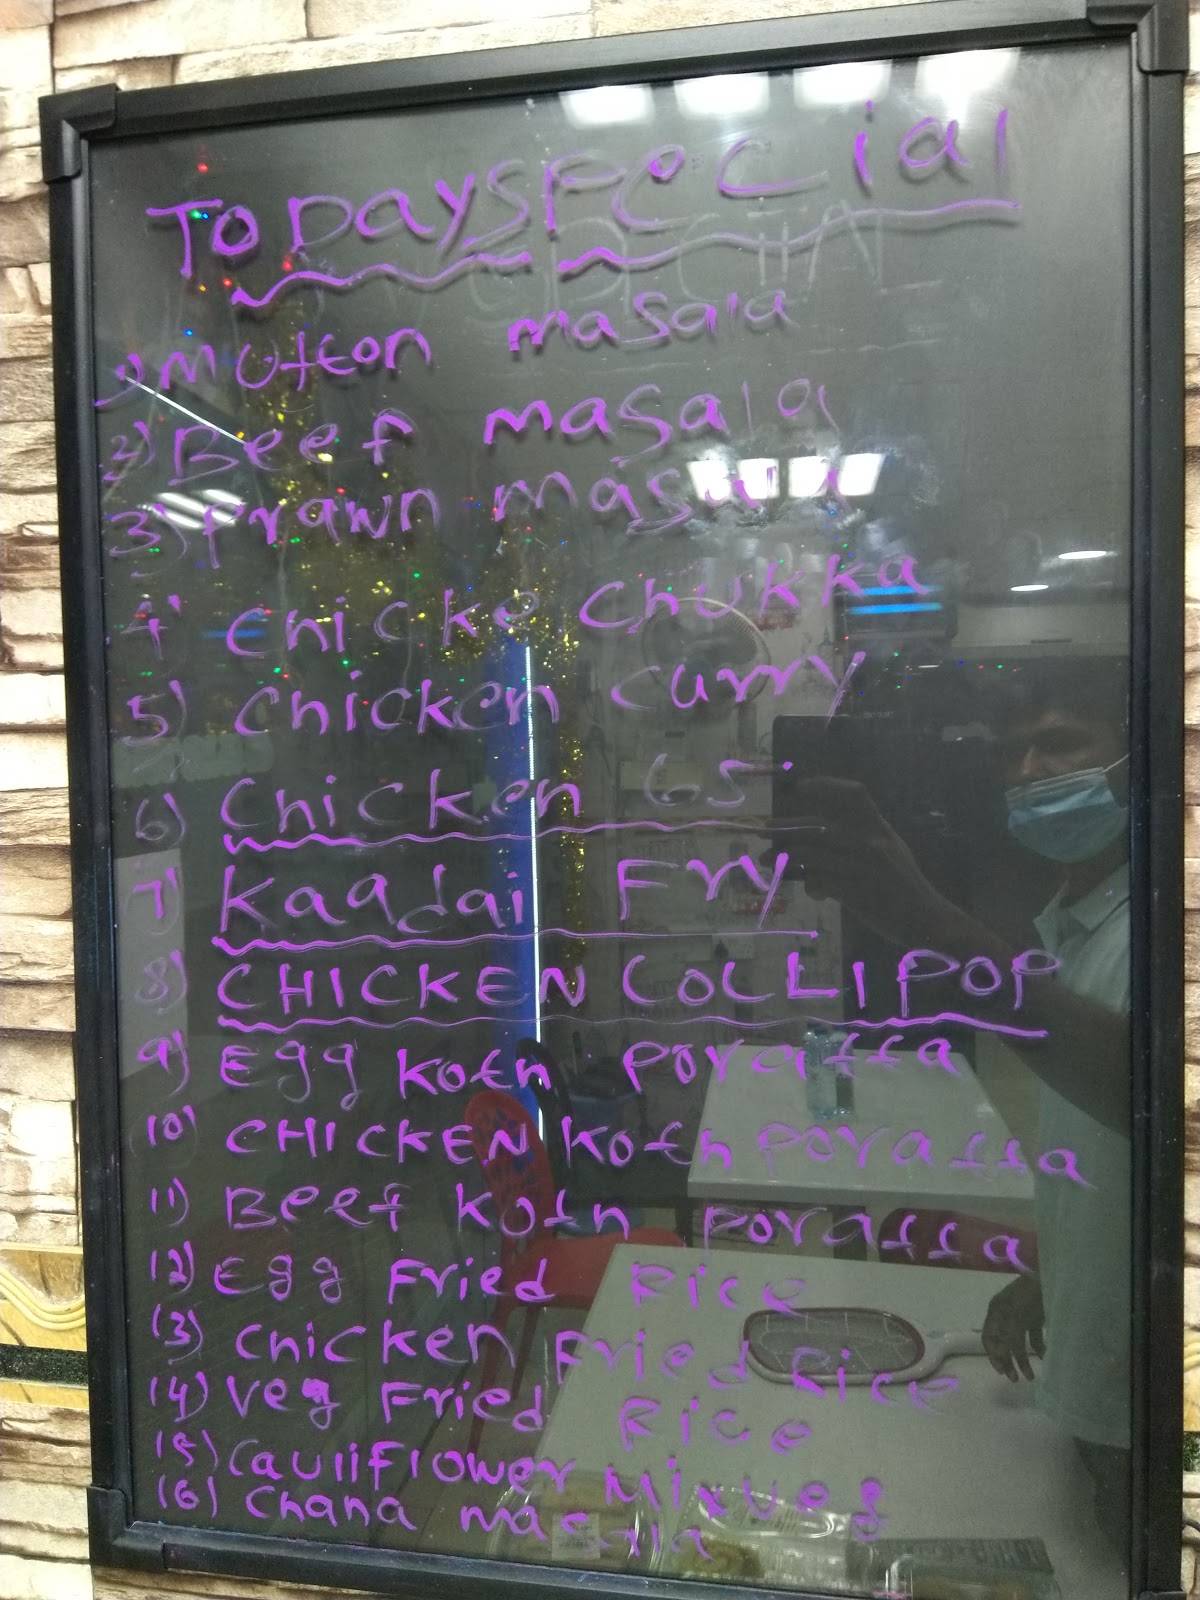 TODAY SPECial
1) Mutton masala
2) Beef masala
3) Prawn masala
4) Chicke Chukka
5) Chicken Curry
6) Chicken 65
7) Kaadai Fry
8) CHICKEN COLLIPOP
9) Egg Koth Poratta
10) CHICKEN Koth Poratta
11) Beef Koth Poratta
12) Egg Fried Rice
13) Chicken Fried Rice
14) Veg Fried Rice
15) Cauliflower
16) Chana masala